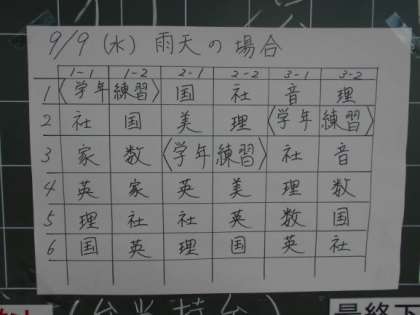 9/9 (水) 雨天の場合
1-1 1-2 2-1 2-2 3-1 3-2
1 〈学年 練習〉 国 社 音 理
2 社 国 美 理 〈学年 練習〉
3 家 数 〈学年 練習〉 社 音
4 英 家 英 美 理 数
5 理 社 社 英 数 国
6 国 英 理 国 英 社
最終下